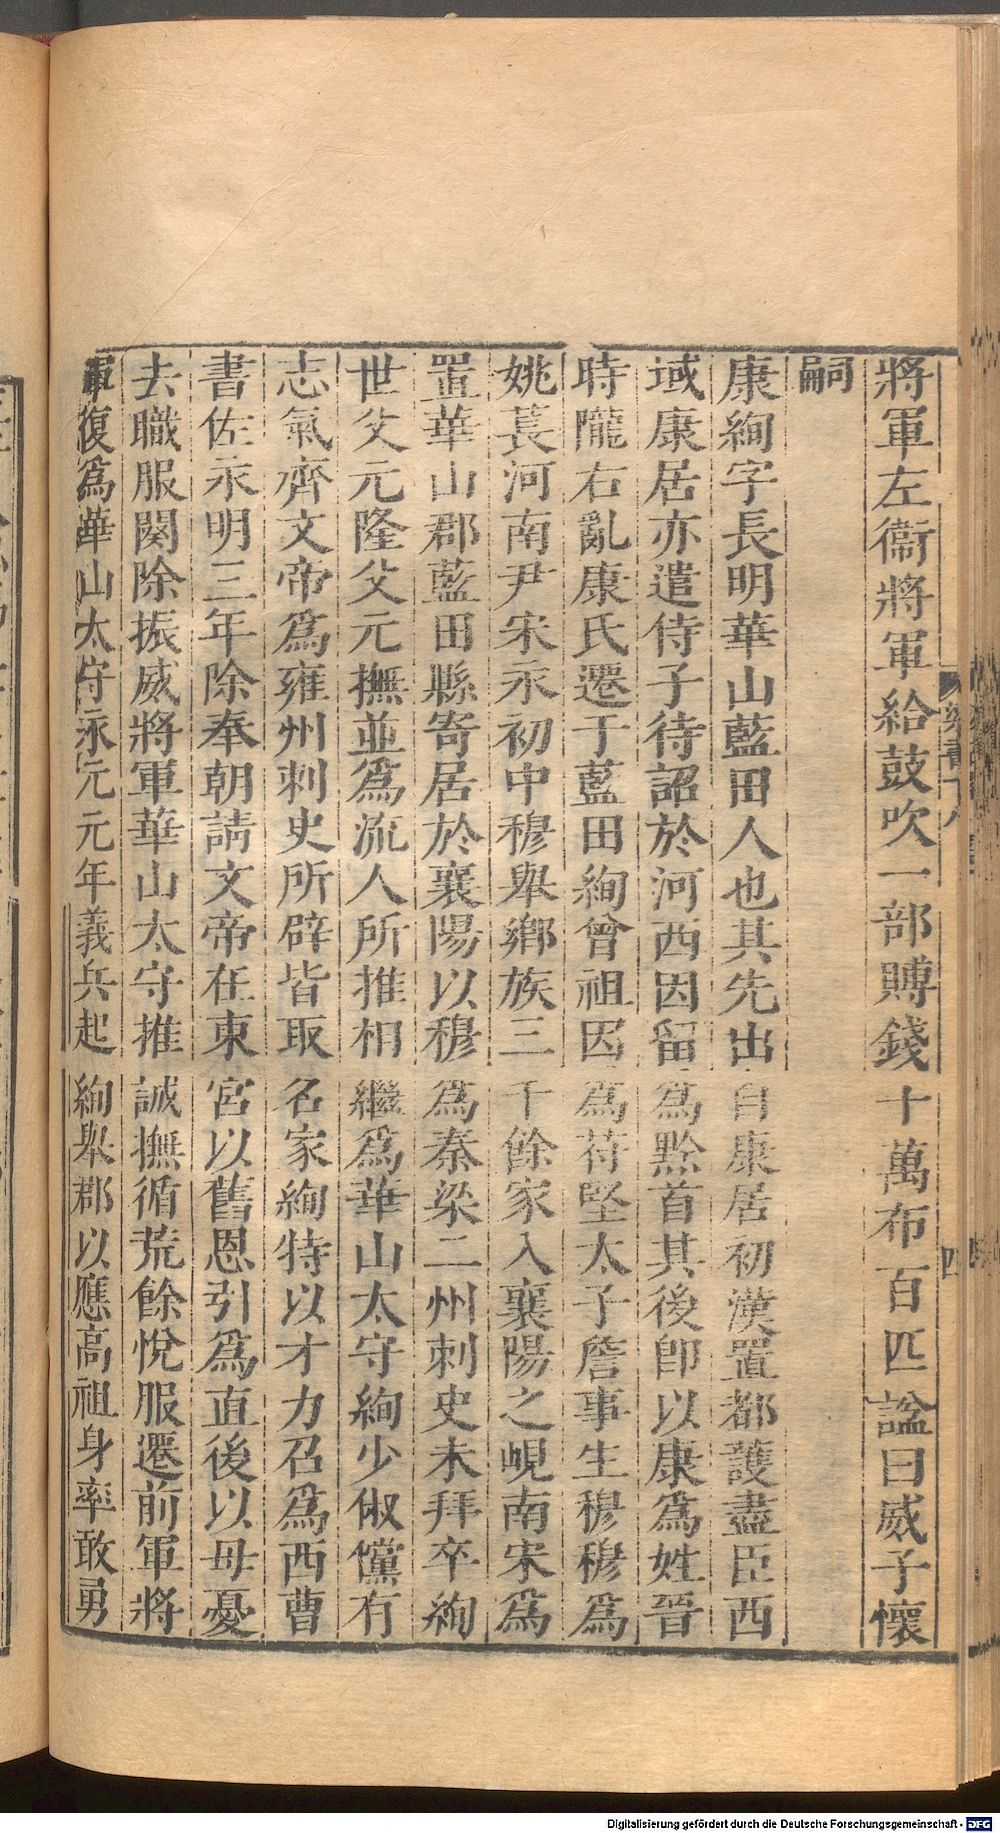 將軍左衞將軍給鼓吹一部賻錢十萬布百匹諡曰威子懷
嗣
康絢字長明華山藍田人也其先出自康居初漢置都護盡臣西
域康居亦遣侍子待詔於河西因留爲黔首其後卽以康爲姓晉
時隴右亂康氏遷于藍田絢曾祖因爲苻堅太子詹事生穆穆爲
姚萇河南尹宋永初中穆舉鄉族三千餘家入襄陽之峴南宋爲
置華山郡藍田縣寄居於襄陽以穆爲秦梁二州刺史未拜卒絢
世父元隆父元撫並爲流人所推相繼爲華山太守絢少俶儻有
志氣齊文帝爲雍州刺史所辟皆取名家絢特以才力召爲西曹
書佐永明三年除奉朝請文帝在東宮以舊恩引爲直後以母憂
去職服闋除振威將軍華山太守推誠撫循荒餘悅服遷前軍將
軍復爲華山太守永元元年義兵起絢舉郡以應高祖身率敢勇
梁書十八
四
Digitalisierung gefördert durch die Deutsche Forschungsgemeinschaft - DFG